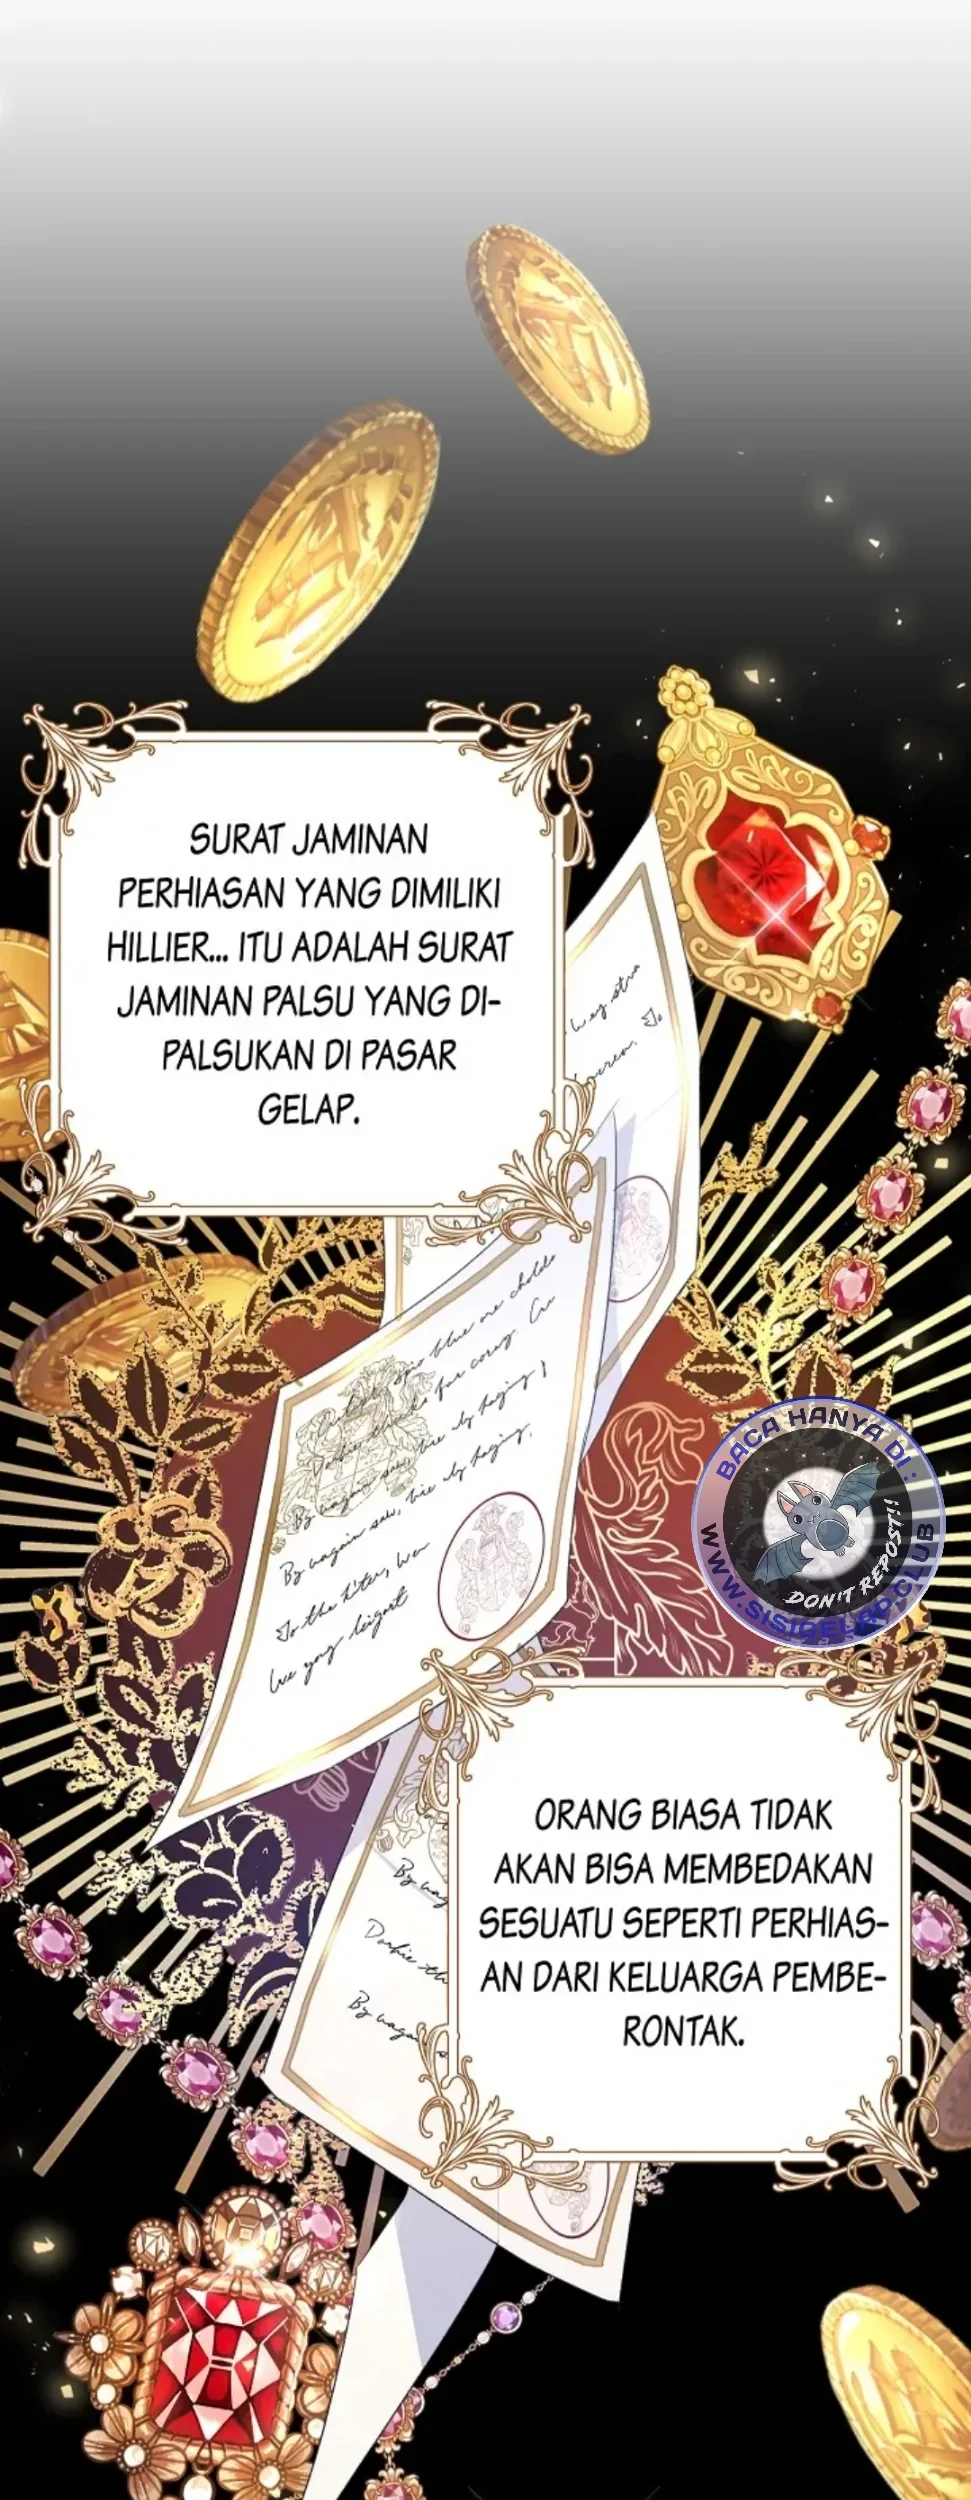 SURAT JAMINAN
PERHIASAN YANG DIMILIKI
HILLIER... ITU ADALAH SURAT
JAMINAN PALSU YANG DI-
PALSUKAN DI PASAR
GELAP.
BACA HANYA DI :
DON'T REPOST!!
WWW.SISIGELAP.CLUB
ORANG BIASA TIDAK
AKAN BISA MEMBEDAKAN
SESUATU SEPERTI PERHIAS-
AN DARI KELUARGA PEMBE-
RONTAK.